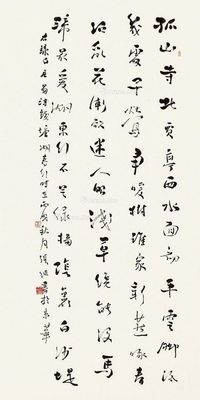 孤山寺北賈亭西水面初平雲脚低
幾處早鶯爭暖樹誰家新燕啄春
泥亂花漸欲迷人眼淺草能沒馬
蹄最愛湖東行不足綠楊陰裏白沙堤
右錄白居易詩錢塘湖春行時在秋月書於京華